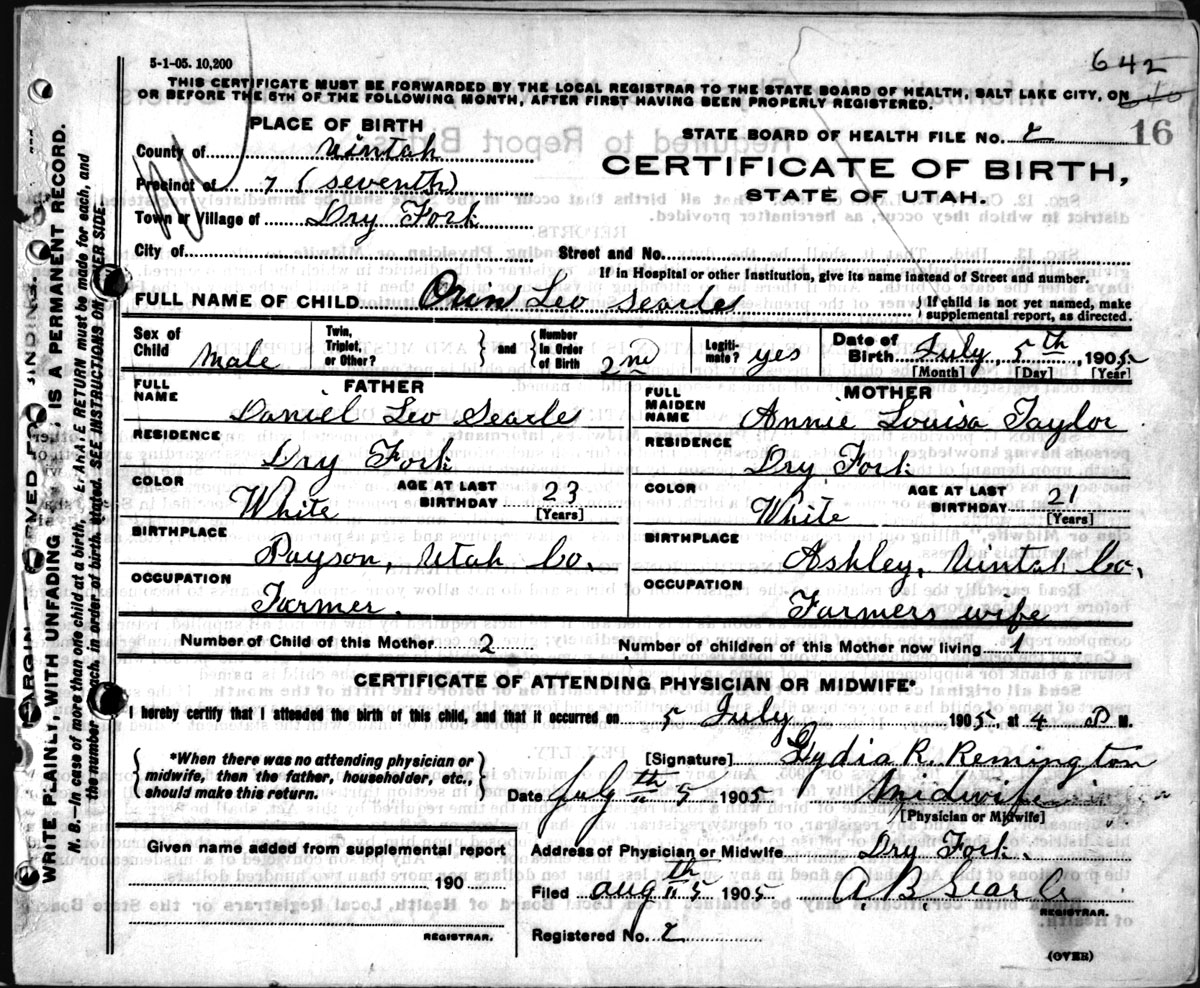 642
5-1-05. 10,200
THIS CERTIFICATE MUST BE FORWARDED BY THE LOCAL REGISTRAR TO THE STATE BOARD OF HEALTH, SALT LAKE CITY, ON
OR BEFORE THE 5TH OF THE FOLLOWING MONTH, AFTER FIRST HAVING BEEN PROPERLY REGISTERED.
PLACE OF BIRTH
STATE BOARD OF HEALTH FILE No. 2
16
County of Uintah
CERTIFICATE OF BIRTH,
Precinct of 7 (seventh)
STATE OF UTAH.
Town or Village of Dry Fork
City of Street and No.
If in Hospital or other Institution, give its name instead of Street and number.
FULL NAME OF CHILD Leo Searle
If child is not yet named, make supplemental report, as directed.
Sex of Child Male
Twin, Triplet, or Other? and Number in Order of Birth 2nd
Legiti-mate? yes
Date of Birth July 5th 1905
[Month] [Day] [Year]
FATHER
FULL NAME Daniel Leo Searle
RESIDENCE Dry Fork
COLOR White AGE AT LAST BIRTHDAY 23 [Years]
BIRTHPLACE Payson, Utah Co.
OCCUPATION Farmer.
MOTHER
FULL MAIDEN NAME Annie Louisa Taylor
RESIDENCE Dry Fork
COLOR White AGE AT LAST BIRTHDAY 21 [Years]
BIRTHPLACE Ashley, Uintah Co.
OCCUPATION Farmers wife
Number of Child of this Mother 2 Number of children of this Mother now living 1
CERTIFICATE OF ATTENDING PHYSICIAN OR MIDWIFE*
I hereby certify that I attended the birth of this child, and that it occurred on 5 July 1905 at 4 P M.
*When there was no attending physician or
midwife, then the father, householder, etc.,
should make this return.
[Signature] Lydia R. Remington
Date July 5th 1905 Midwife
[Physician or Midwife]
Given name added from supplemental report
190
REGISTRAR.
Address of Physician or Midwife Dry Fork.
Filed Aug 5th 1905 A B Searle
REGISTRAR.
Registered No. 2
(OVER)
MARGIN RESERVED FOR BINDING.
WRITE PLAINLY, WITH UNFADING INK, IS A PERMANENT RECORD.
N. B.—In case of more than one child at a birth, a SEPARATE RETURN must be made for each, and
the number of each, in order of birth, stated. SEE INSTRUCTIONS ON OTHER SIDE.